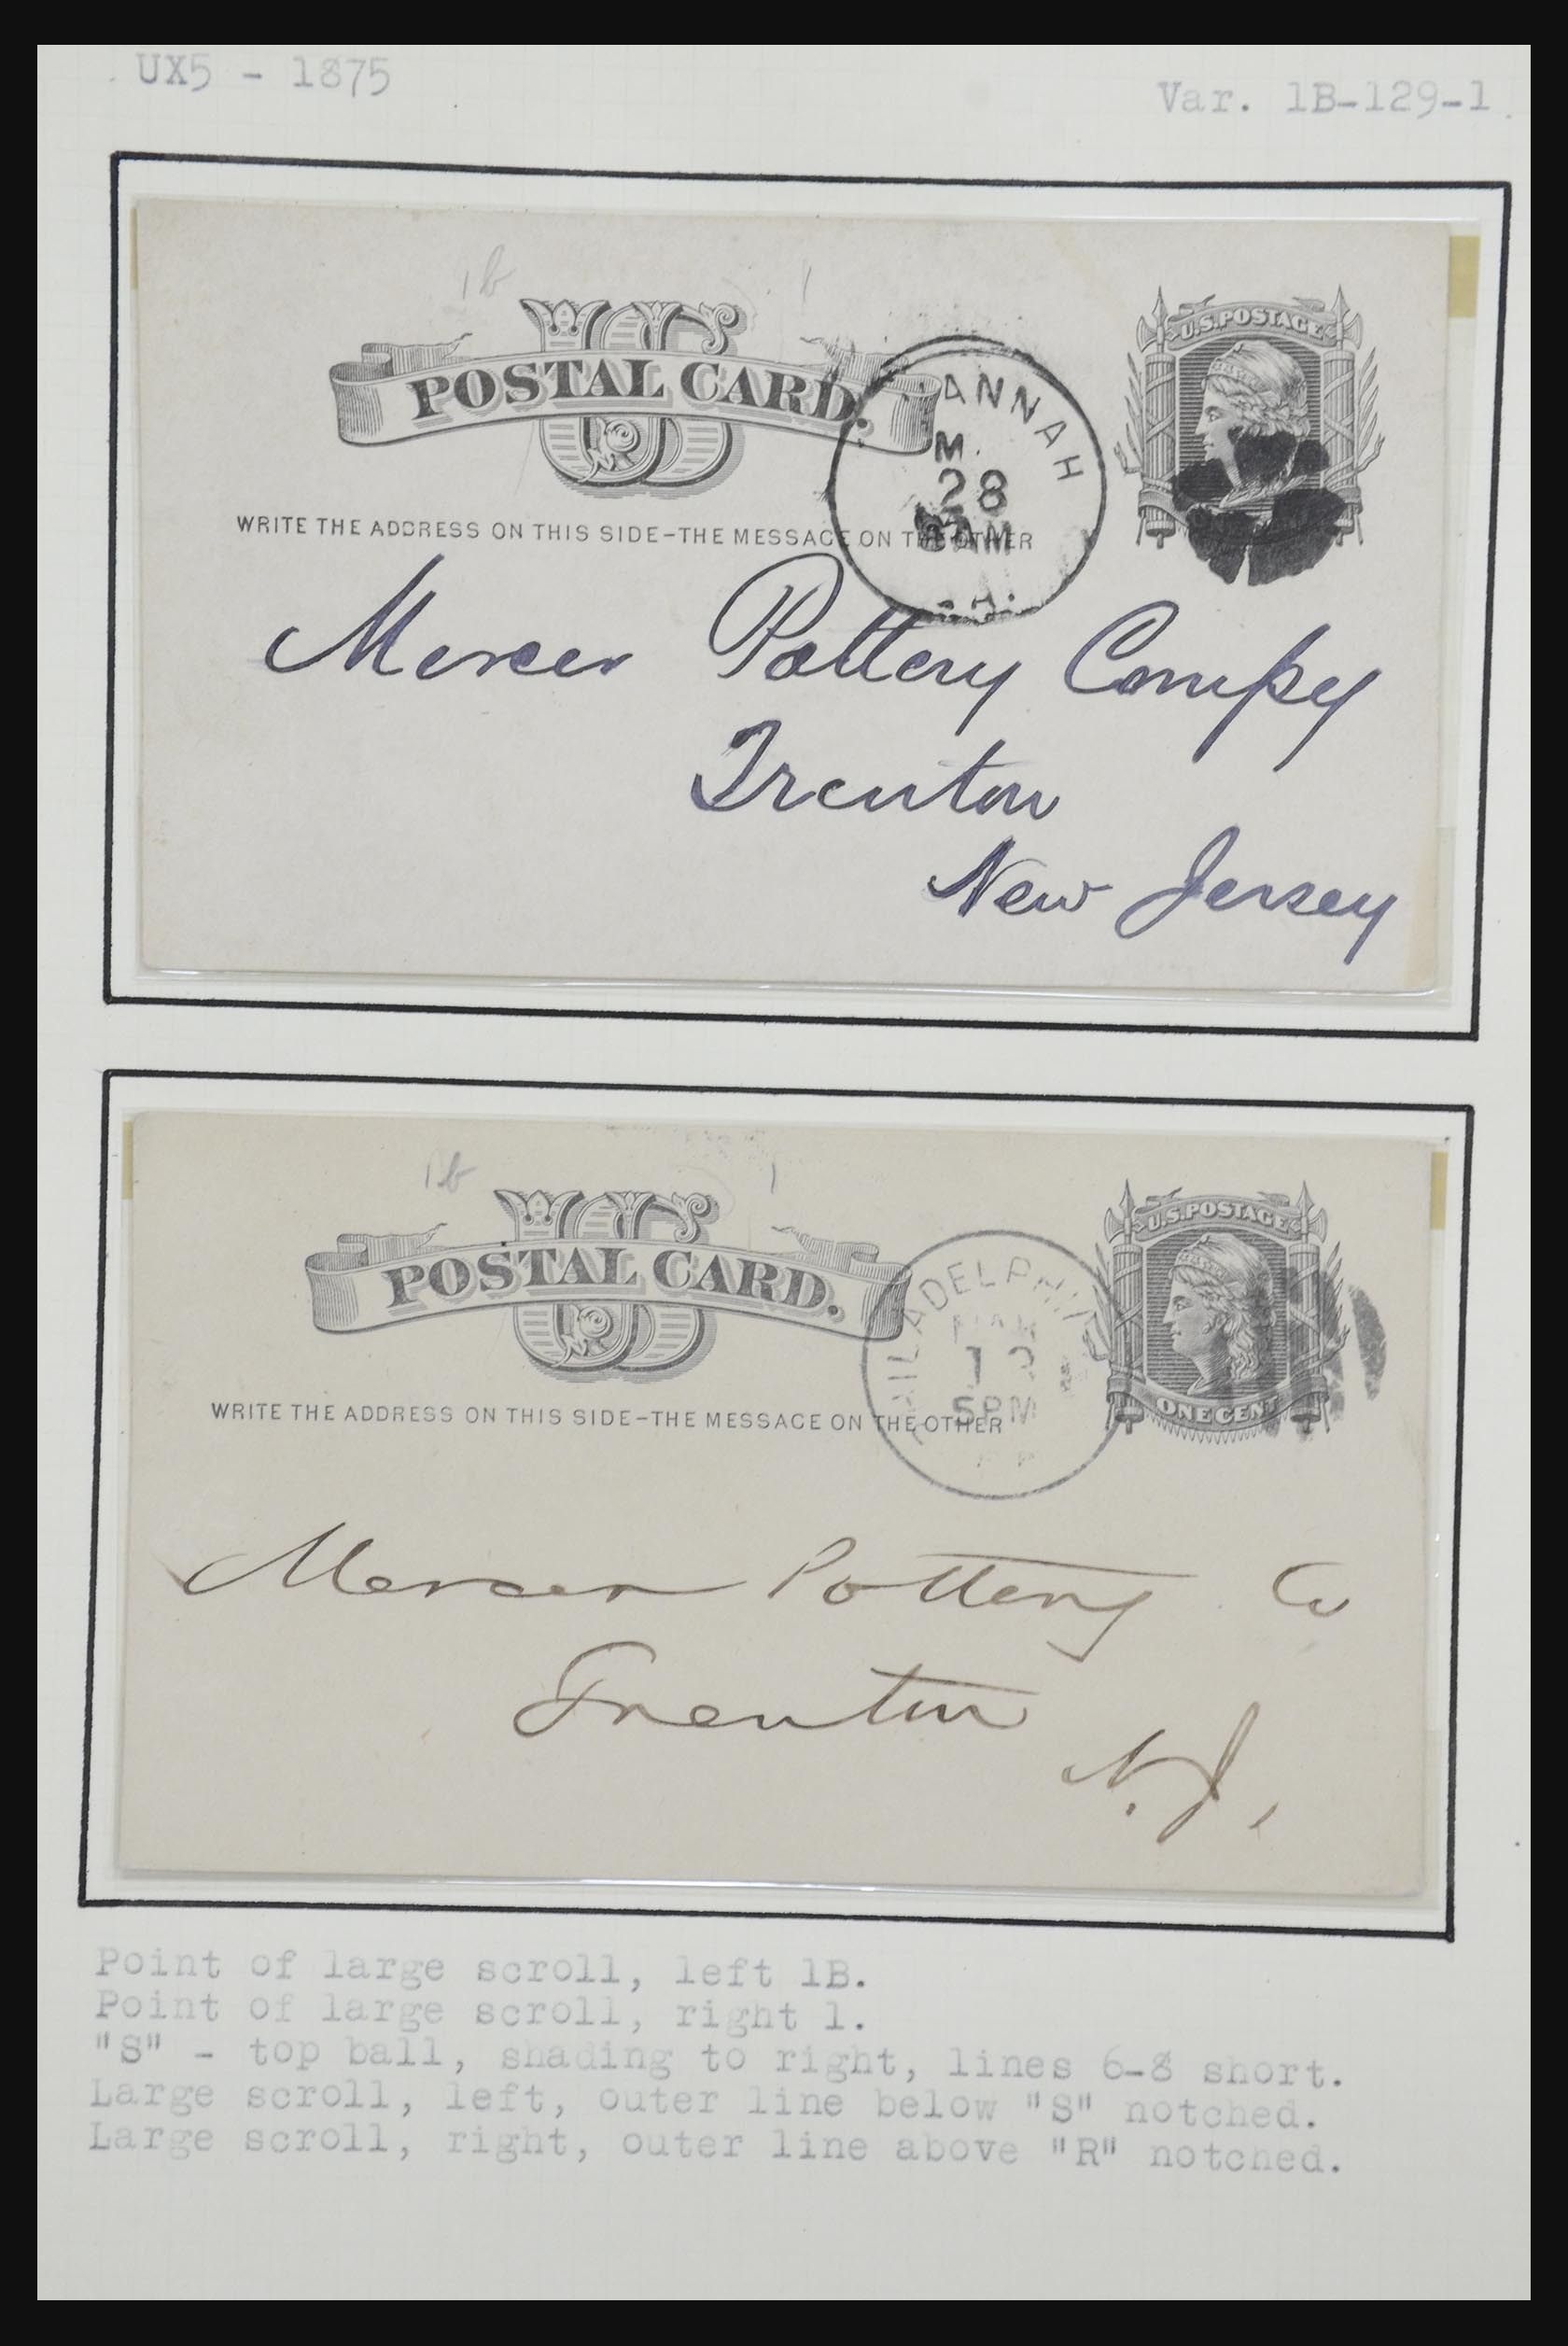 UX5 - 1875
Var. 1B-129-1.
1b 1
US
POSTAL CARD.
U.S. POSTAGE
ANNAH
M.
28
AM
A.
WRITE THE ADDRESS ON THIS SIDE-THE MESSAGE ON THE OTHER
Mercer Pottery Compy
Trenton
New Jersey
1b 1
US
POSTAL CARD.
U.S. POSTAGE
ONE CENT
ILADELPHIA
MAR
5PM
WRITE THE ADDRESS ON THIS SIDE-THE MESSAGE ON THE OTHER
Mercer Pottery Co
Trenton
N.J,
Point of large scroll, left 1B.
Point of large scroll, right 1.
"S" - top ball, shading to right, lines 6-8 short.
Large scroll, left, outer line below "S" notched.
Large scroll, right, outer line above "R" notched.